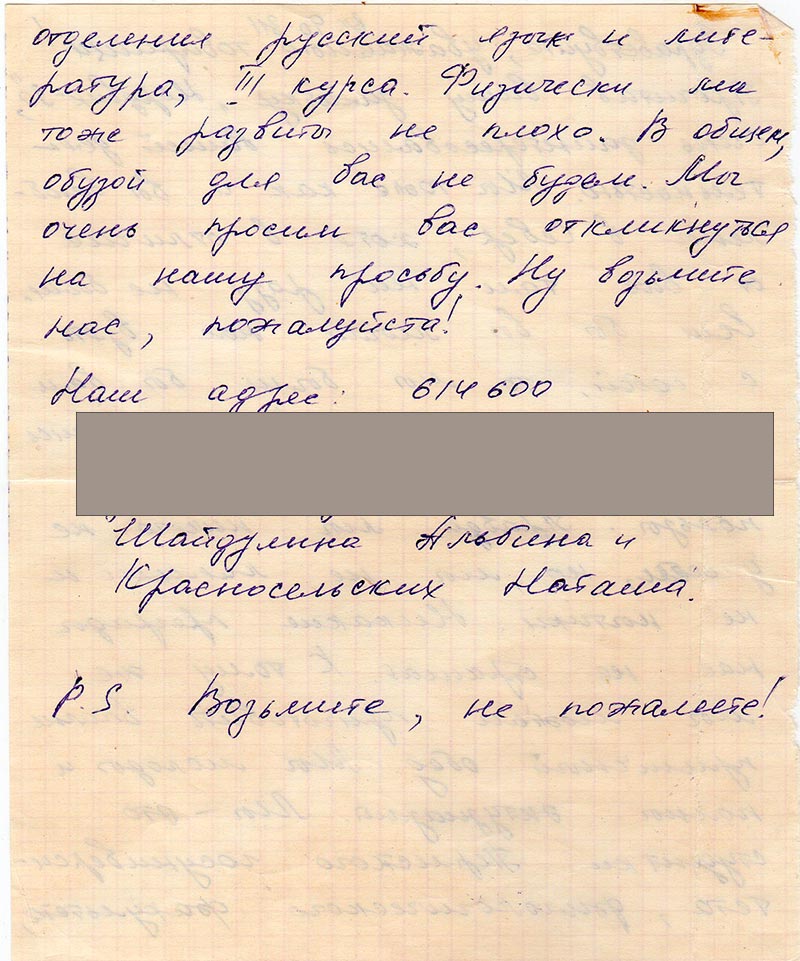 отделения русский язык и лите-
ратура, III курса. Физически мы
тоже развиты не плохо. В общем,
обузой для вас не будем. Мы
очень просим вас откликнуться
на нашу просьбу. Ну возьмите
нас, пожалуйста!
Наш адрес: 614600
Шайдулина Альбина и
Красносельских Наташа.
P.S. Возьмите, не пожалеете!